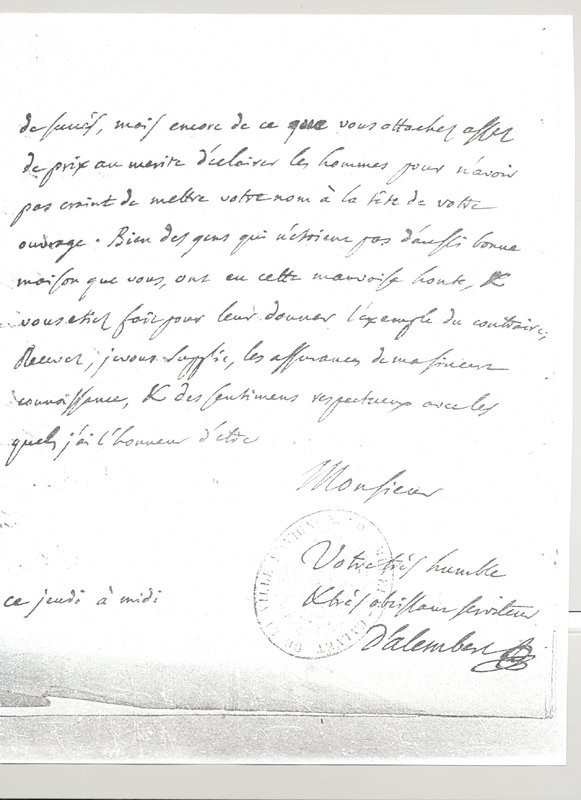 de succès, mais encore de ce que vous attachez assez
de prix au merite d'éclairer les hommes pour n'avoir
pas craint de mettre votre nom à la tête de votre
ouvrage. Bien des gens qui n'étoient pas d'aussi bonne
maison que vous, ont eu cette mauvaise honte, &
vous etiez fait pour leur donner l'exemple du contraire;
Recevez, je vous supplie, les assurances de ma sincere
connoissance, & des sentimens respectueux avec les
quels j'ai l'honneur d'etre
Monsieur
Votre très humble
& très obeissant serviteur
D'alembert
ce jeudi à midi
CALVET DE LA VILLE D'AVIGNON